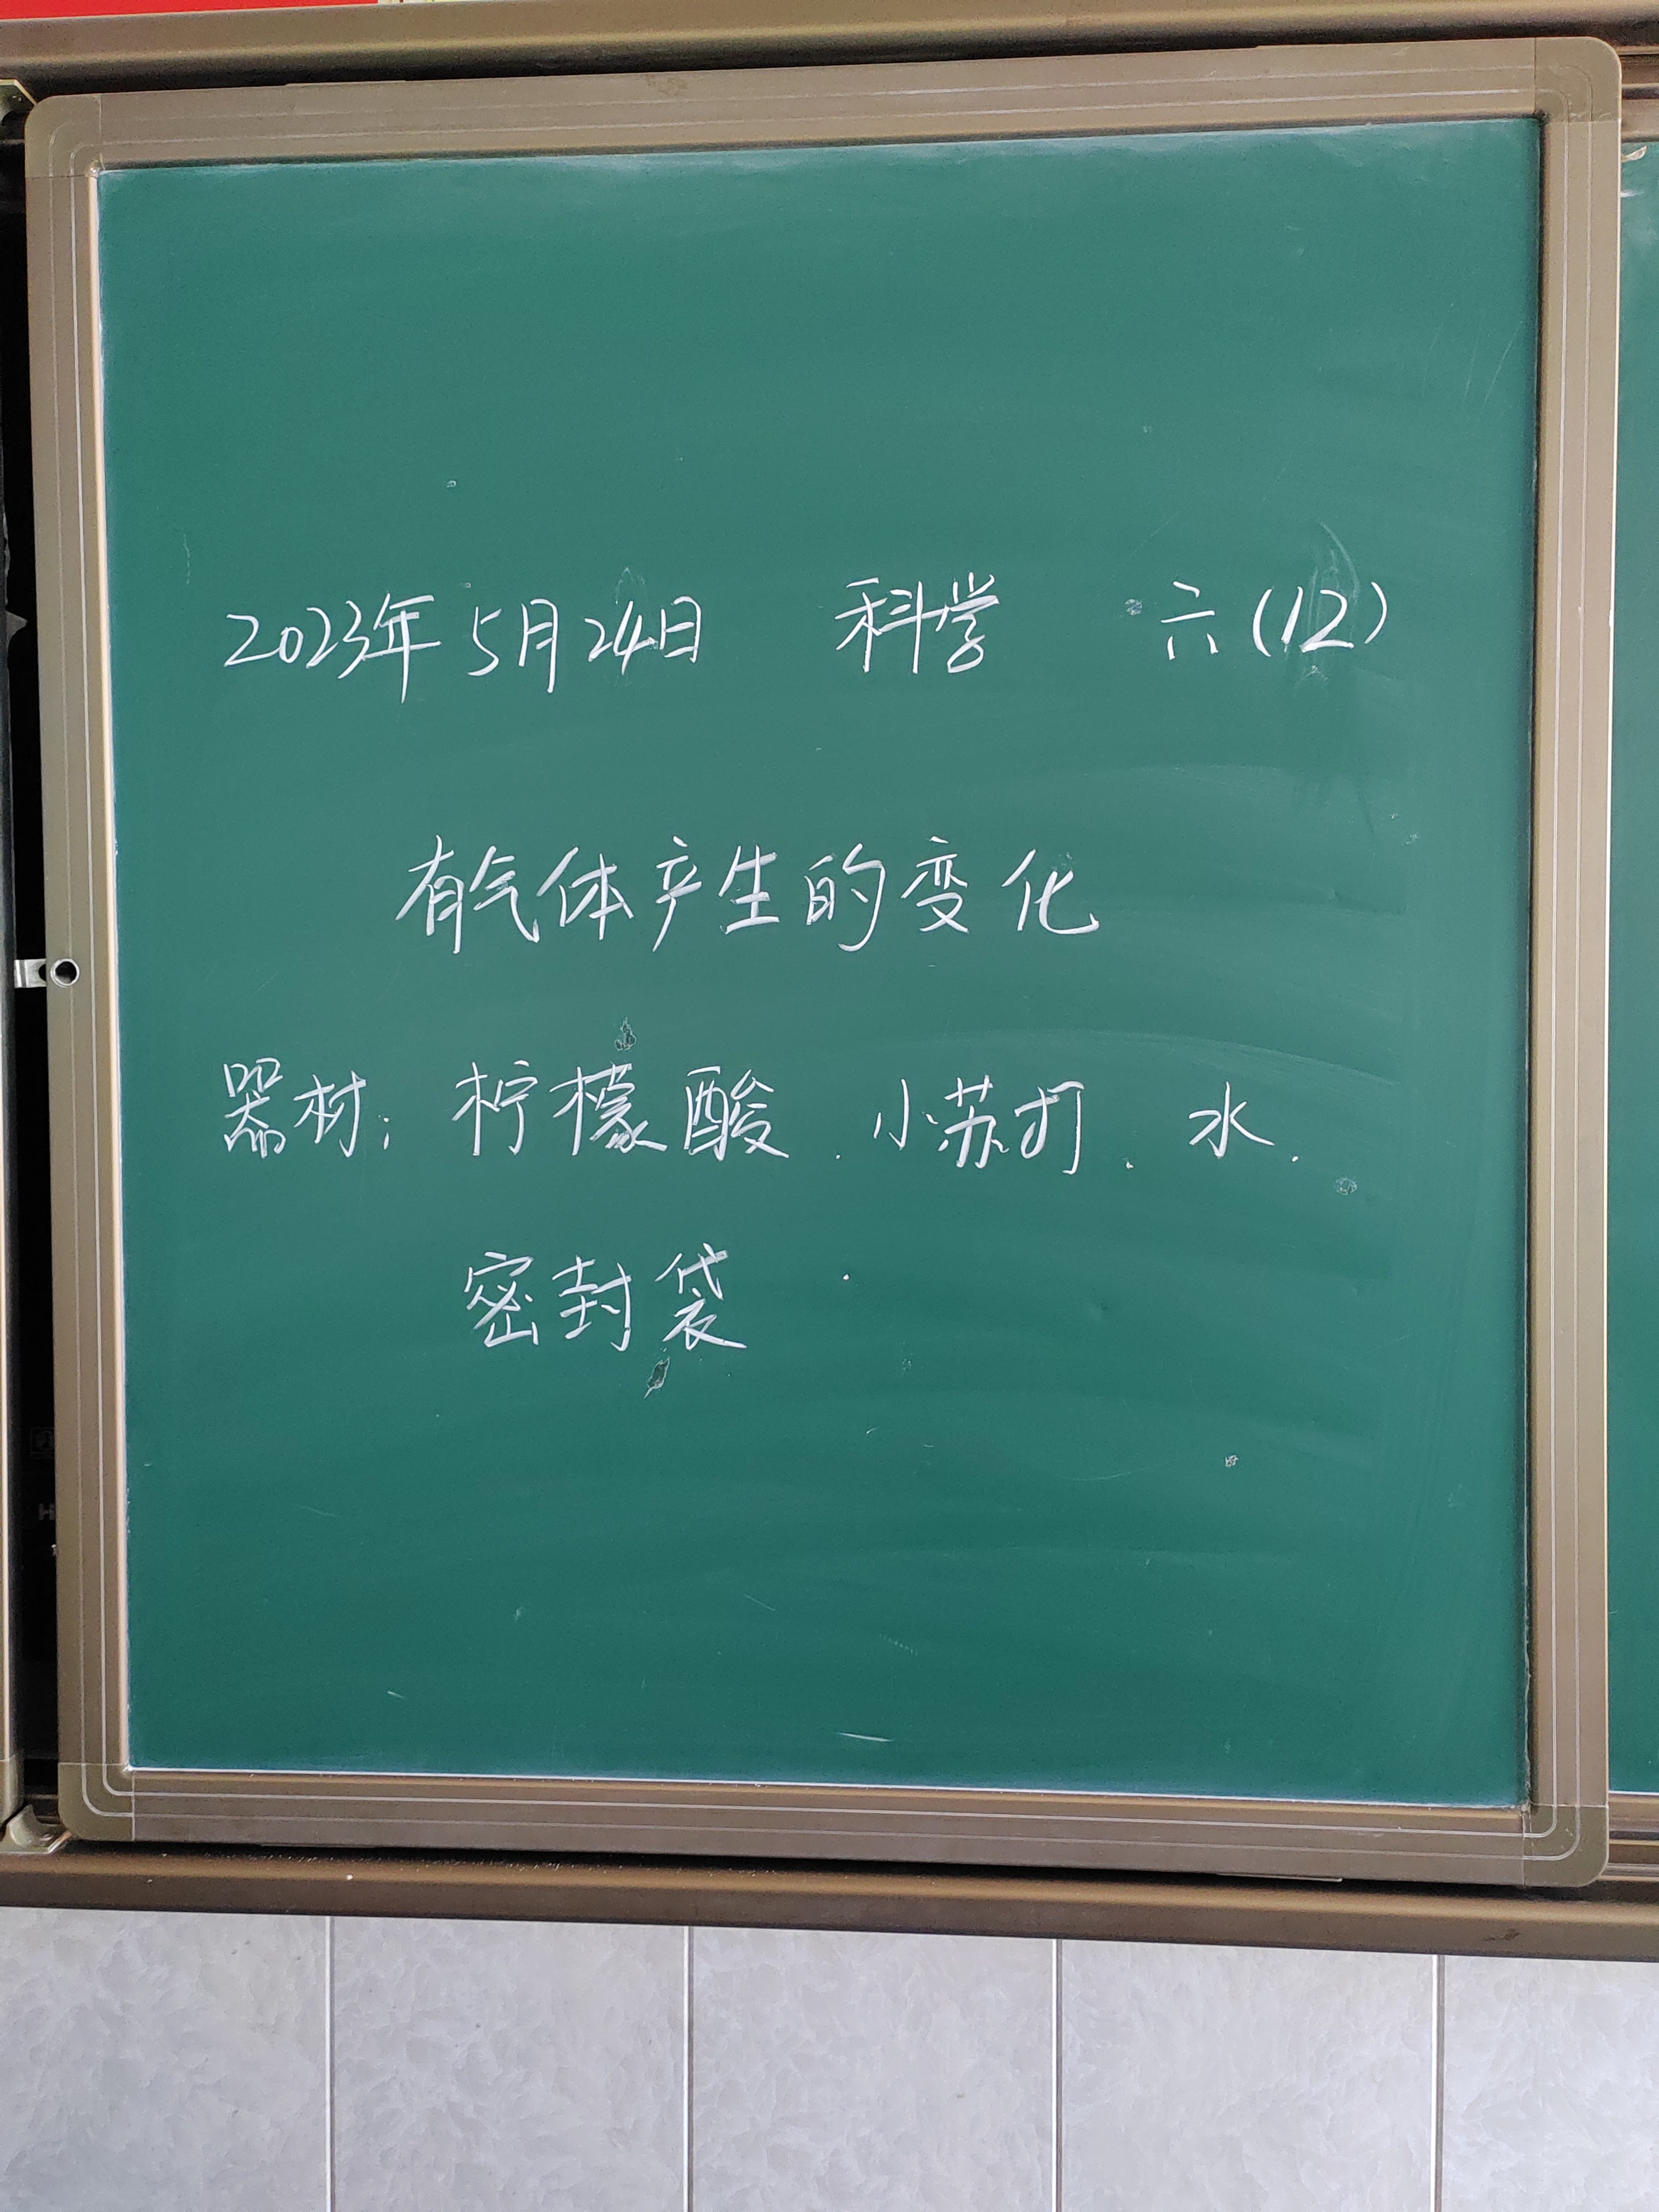 2023年5月24日 科学 六(12)
有气体产生的变化
器材: 柠檬酸、小苏打、水、
密封袋